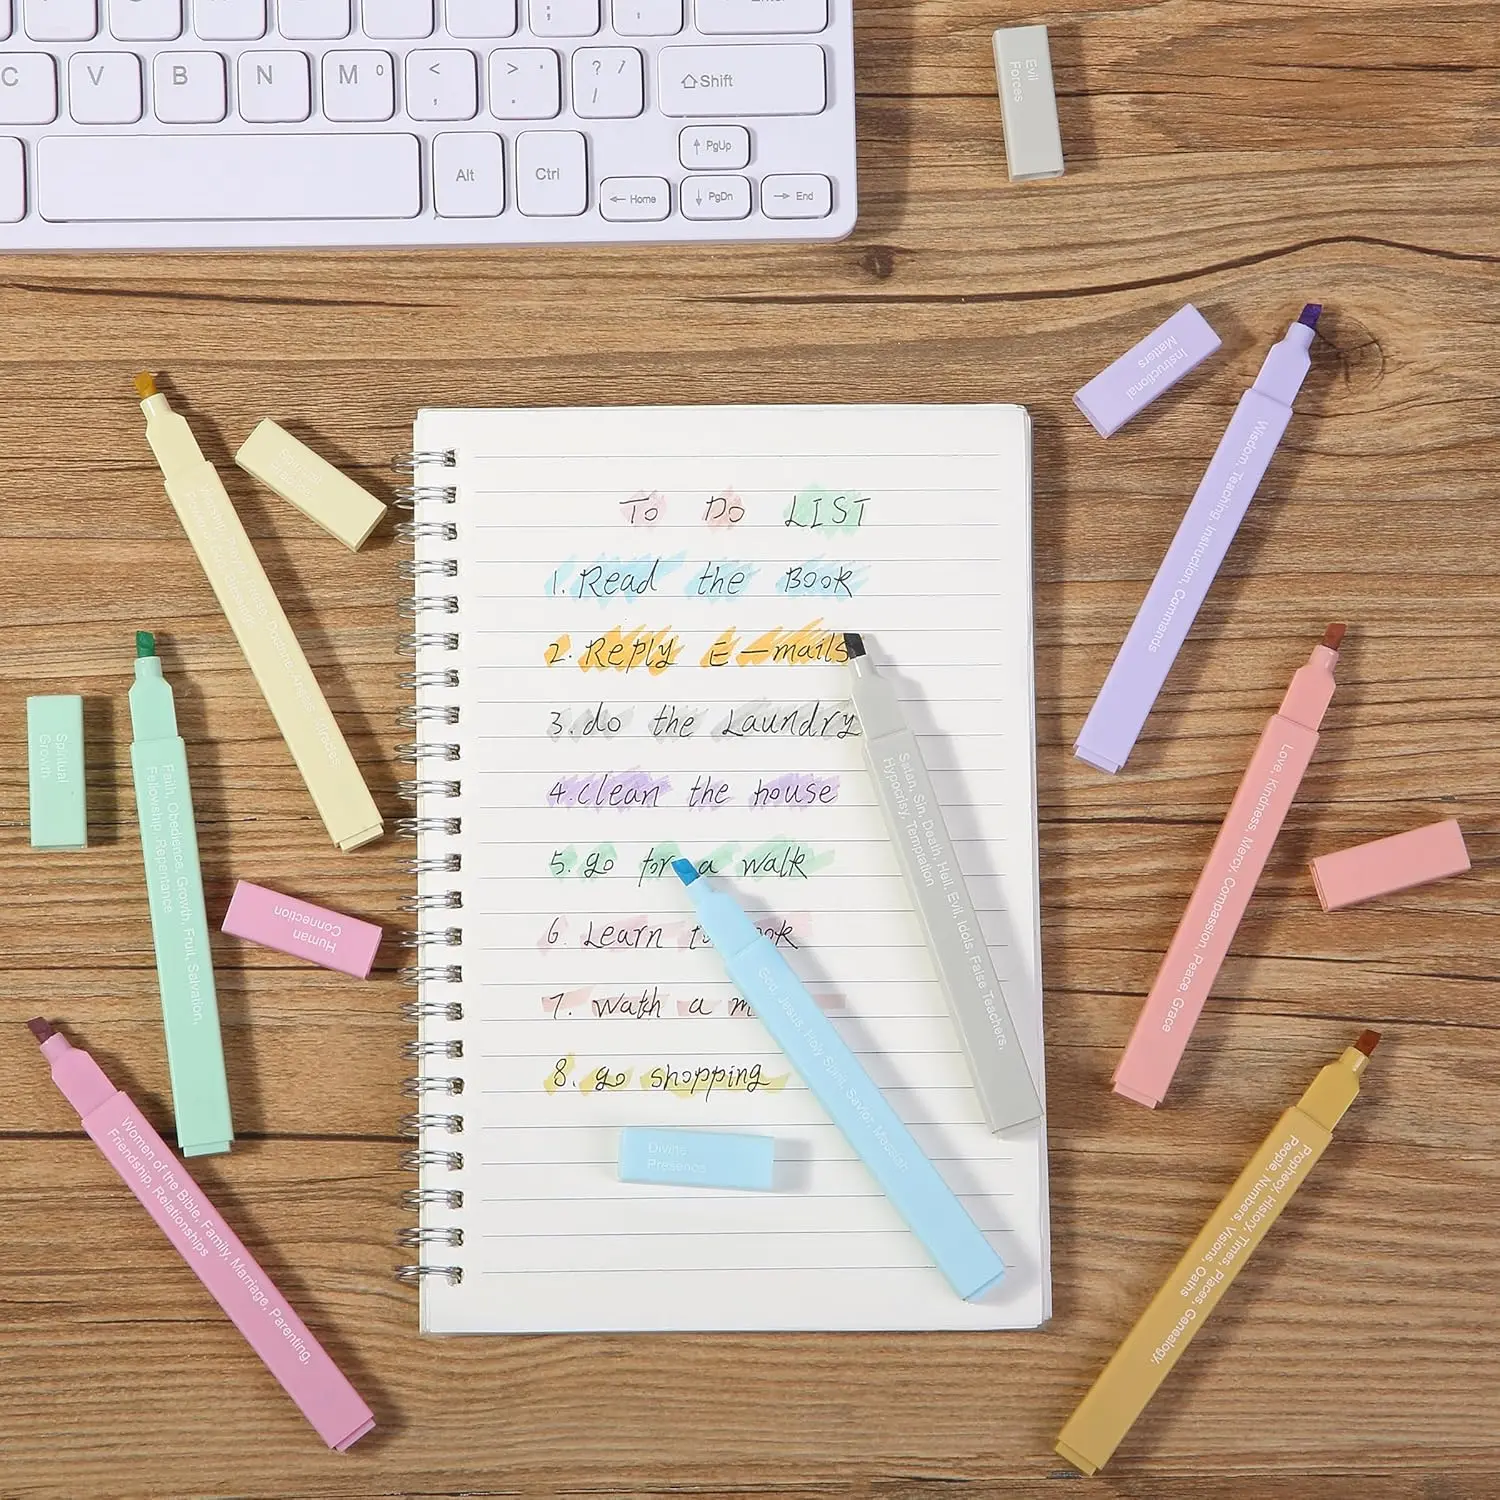 Enter
; :
C
V
B
N
M 0
< ,
> .
? / /
Shift
Alt
Ctrl
PgUp
Home
PgDn
End
Evil
Forces
Instructional
Matters
Wisdom, Teaching, Instruction, Commands
TO DO LIST
1. Read the Book
2. Reply E-mails
3. do the Laundry
4. clean the house
5. go for a walk
6. Learn
7. Wath a m
8. go shopping
Satan, Sin, Death, Hell, Evil, Idols, False Teachers,
Hypocrisy, Temptation
God, Jesus, Holy Spirit, Savior, Messiah
Divine
Presence
Spiritual
Growth
Faith, Obedience, Growth, Fruit, Salvation,
Fellowship, Repentance
Human
Connection
Women of the Bible, Family, Marriage, Parenting,
Friendship, Relationships
Love, Kindness, Mercy, Compassion, Peace, Grace
Prophecy, History, Times, Places, Genealogy,
People, Numbers, Visions, Oaths